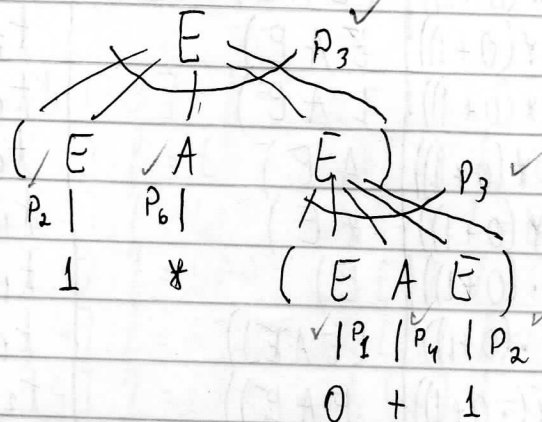 E P3
( E A E )
P2 | P6 | P3
1 * ( E A E )
| P1 | P4 | P2
0 + 1